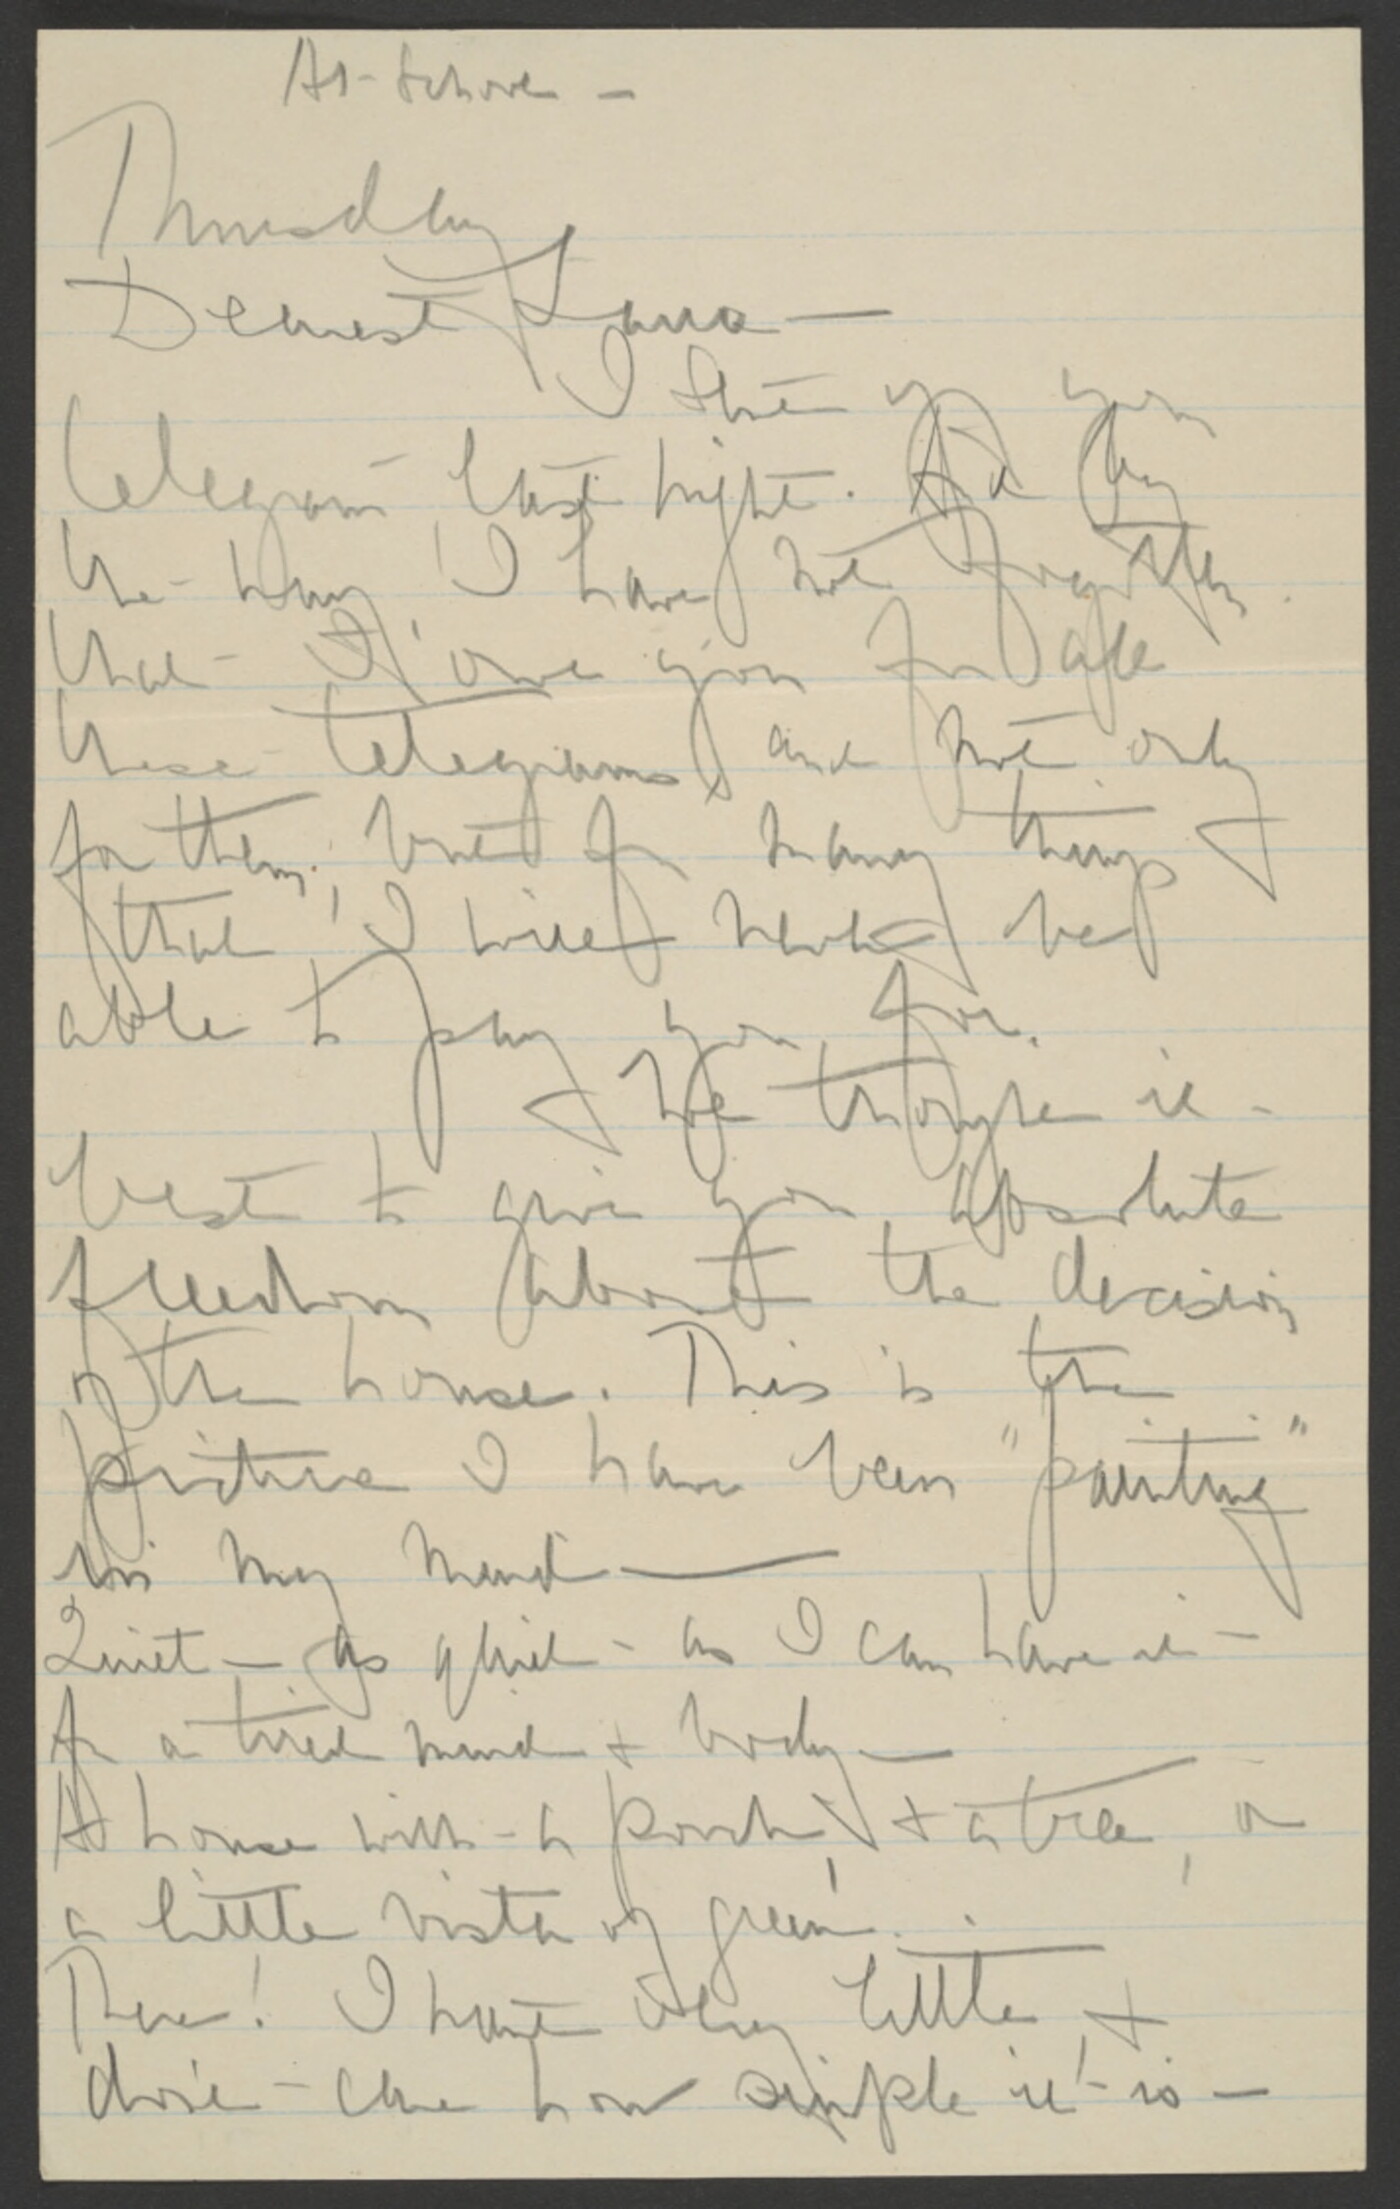 At School —
Thursday
Dearest Laura —
I sent you
telegram last night. And by
the way, I have not forgotten
that I owe you for all
these telegrams, and not only
for them, but for many things
that I will never be
able to pay you for.
I thought it
best to give you absolute
freedom about the decision
of the house. This is the
picture I have been "painting"
in my mind —
Quiet — as quiet as I can have it —
for a tired mind + body —
A house with a porch + a tree, or
a little vista of green.
There! I want very little, +
don't care how simple it is —